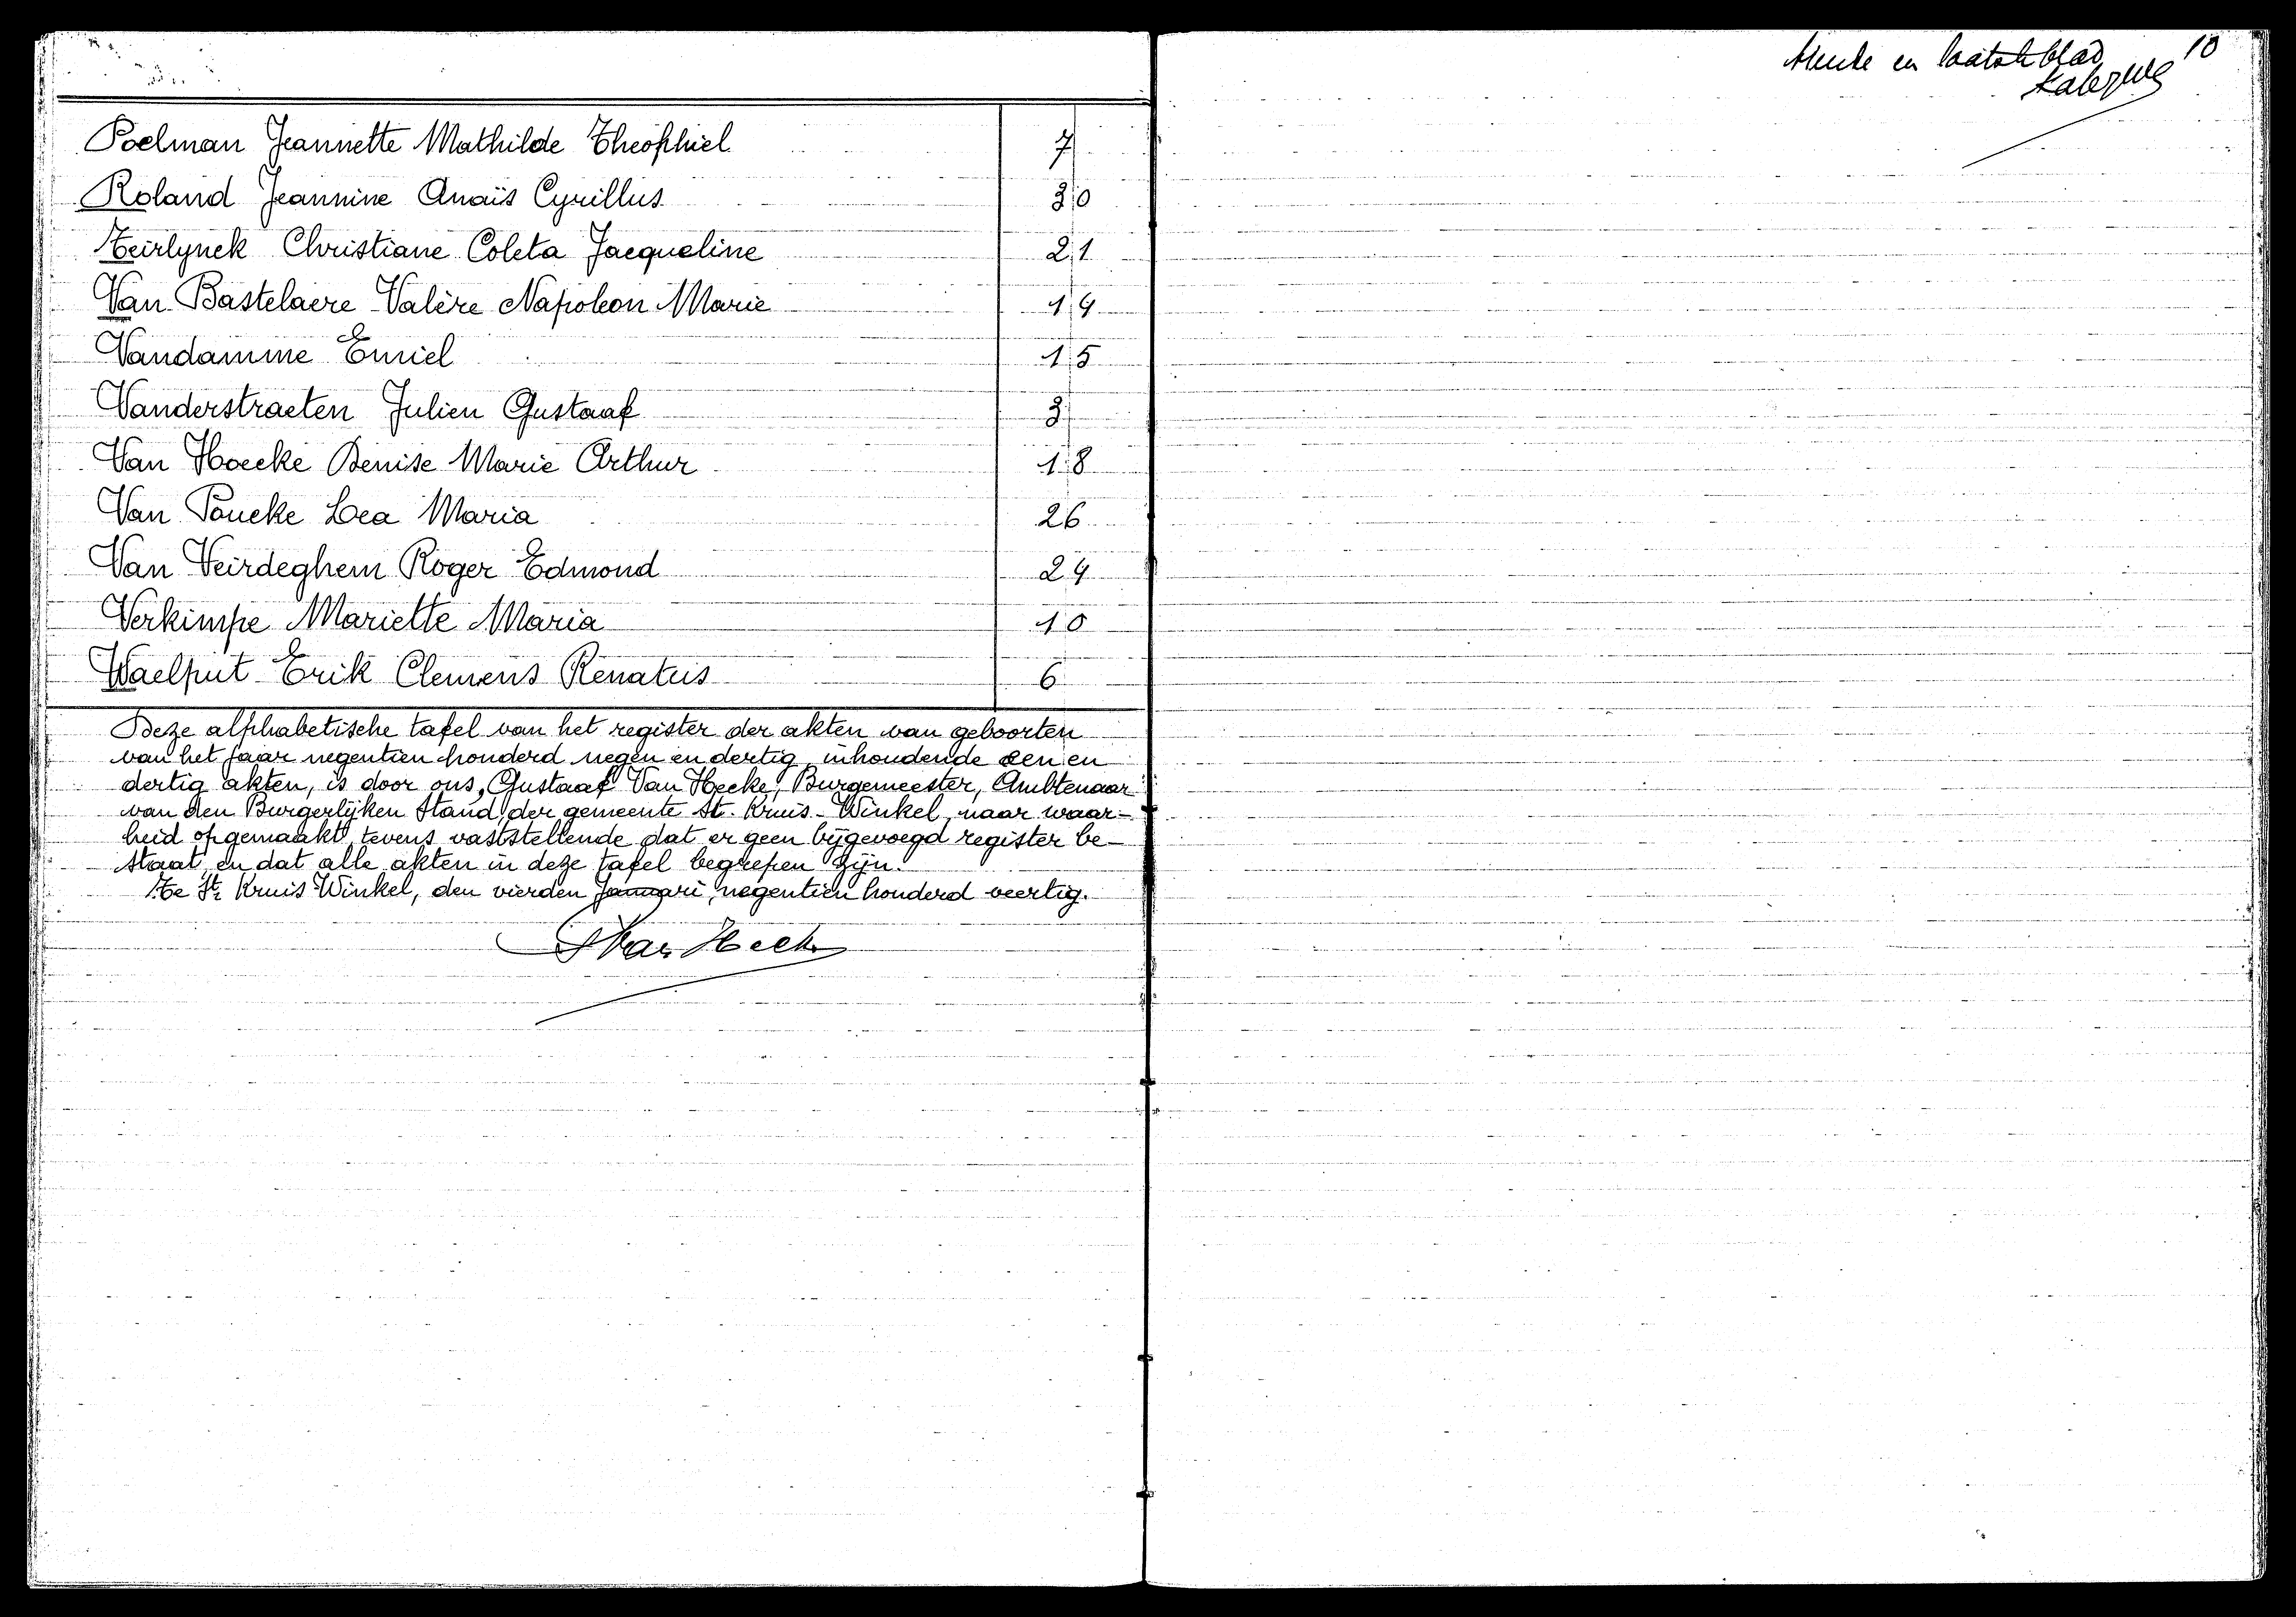 Poelman Jeannette Mathilde Theophiel 7
Roland Jeannine Anaïs Cyrillus 30
Teirlynck Christiane Coleta Jacqueline 21
Van Bastelaere Valère Napoleon Marie 19
Vandamme Emiel 15
Vanderstraeten Julien Gustaaf 3
Van Hoecke Denise Marie Arthur 18
Van Poucke Lea Maria 26
Van Veirdeghem Roger Edmond 29
Verkimpe Mariette Maria 10
Waelput Erik Clemens Renatus 6
Deze alphabetische tafel van het register der akten van geboorten
van het jaar negentien honderd negen en dertig, inhoudende een en
dertig akten, is door ons, Gustaaf Van Hecke, Burgemeester, Ambtenaar
van den Burgerlijken Stand der gemeente St. Kruis-Winkel, naar waar-
heid opgemaakt, tevens vaststellende dat er geen bijgevoegd register be-
staat en dat alle akten in deze tafel begrepen zijn.
Te St. Kruis Winkel, den vierden Januari, negentien honderd veertig.
Van Hecke
en laatste blad 10